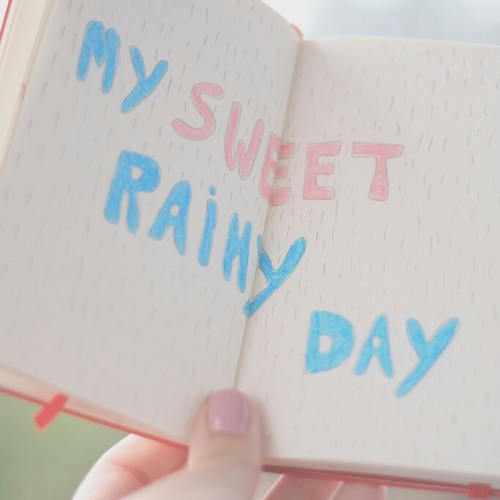 MY
SWEET
RAiNY
DAY